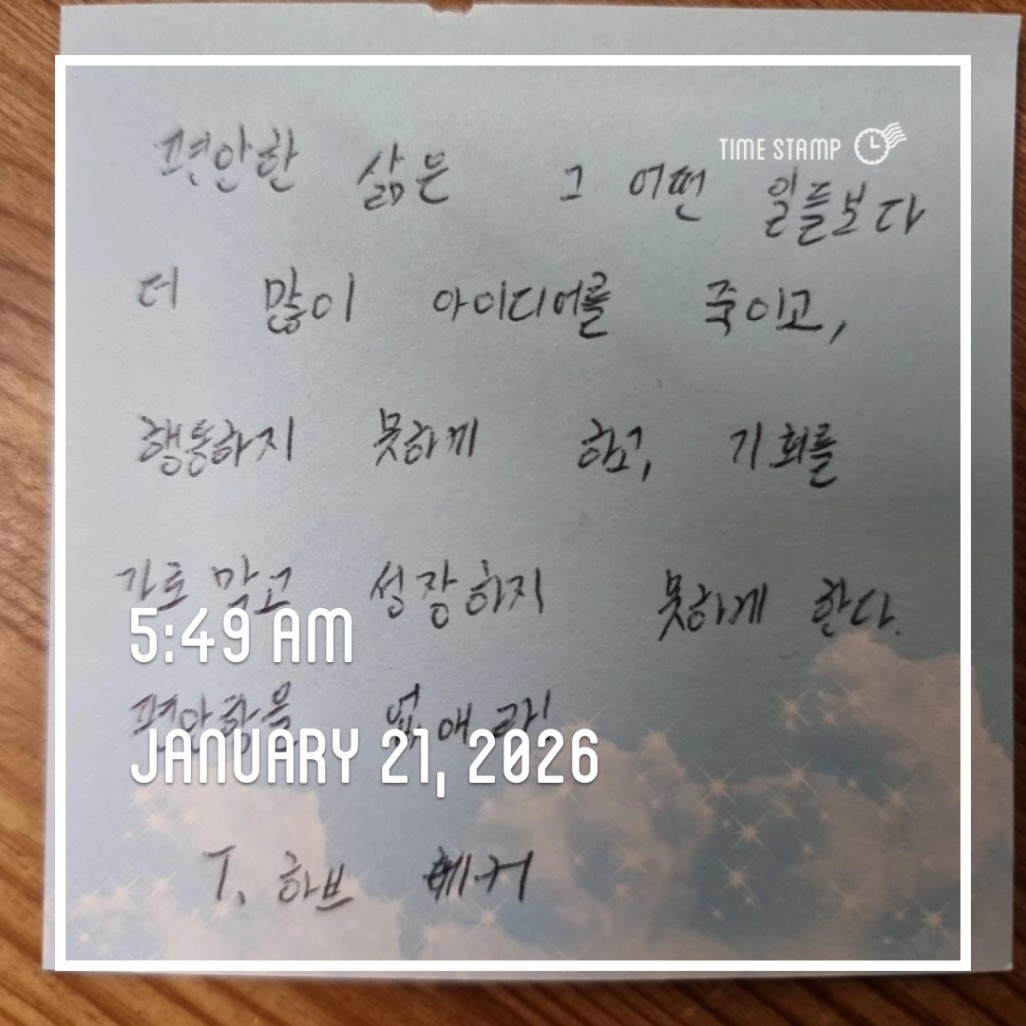 TIME STAMP
편안한 삶은 그 어떤 일들보다
더 많이 아이디어를 죽이고,
행동하지 못하게 하고, 기회를
가로막고 성장하지 못하게 한다.
5:49 AM
편안함을 없애라!
JANUARY 21, 2026
T. 하브 에커